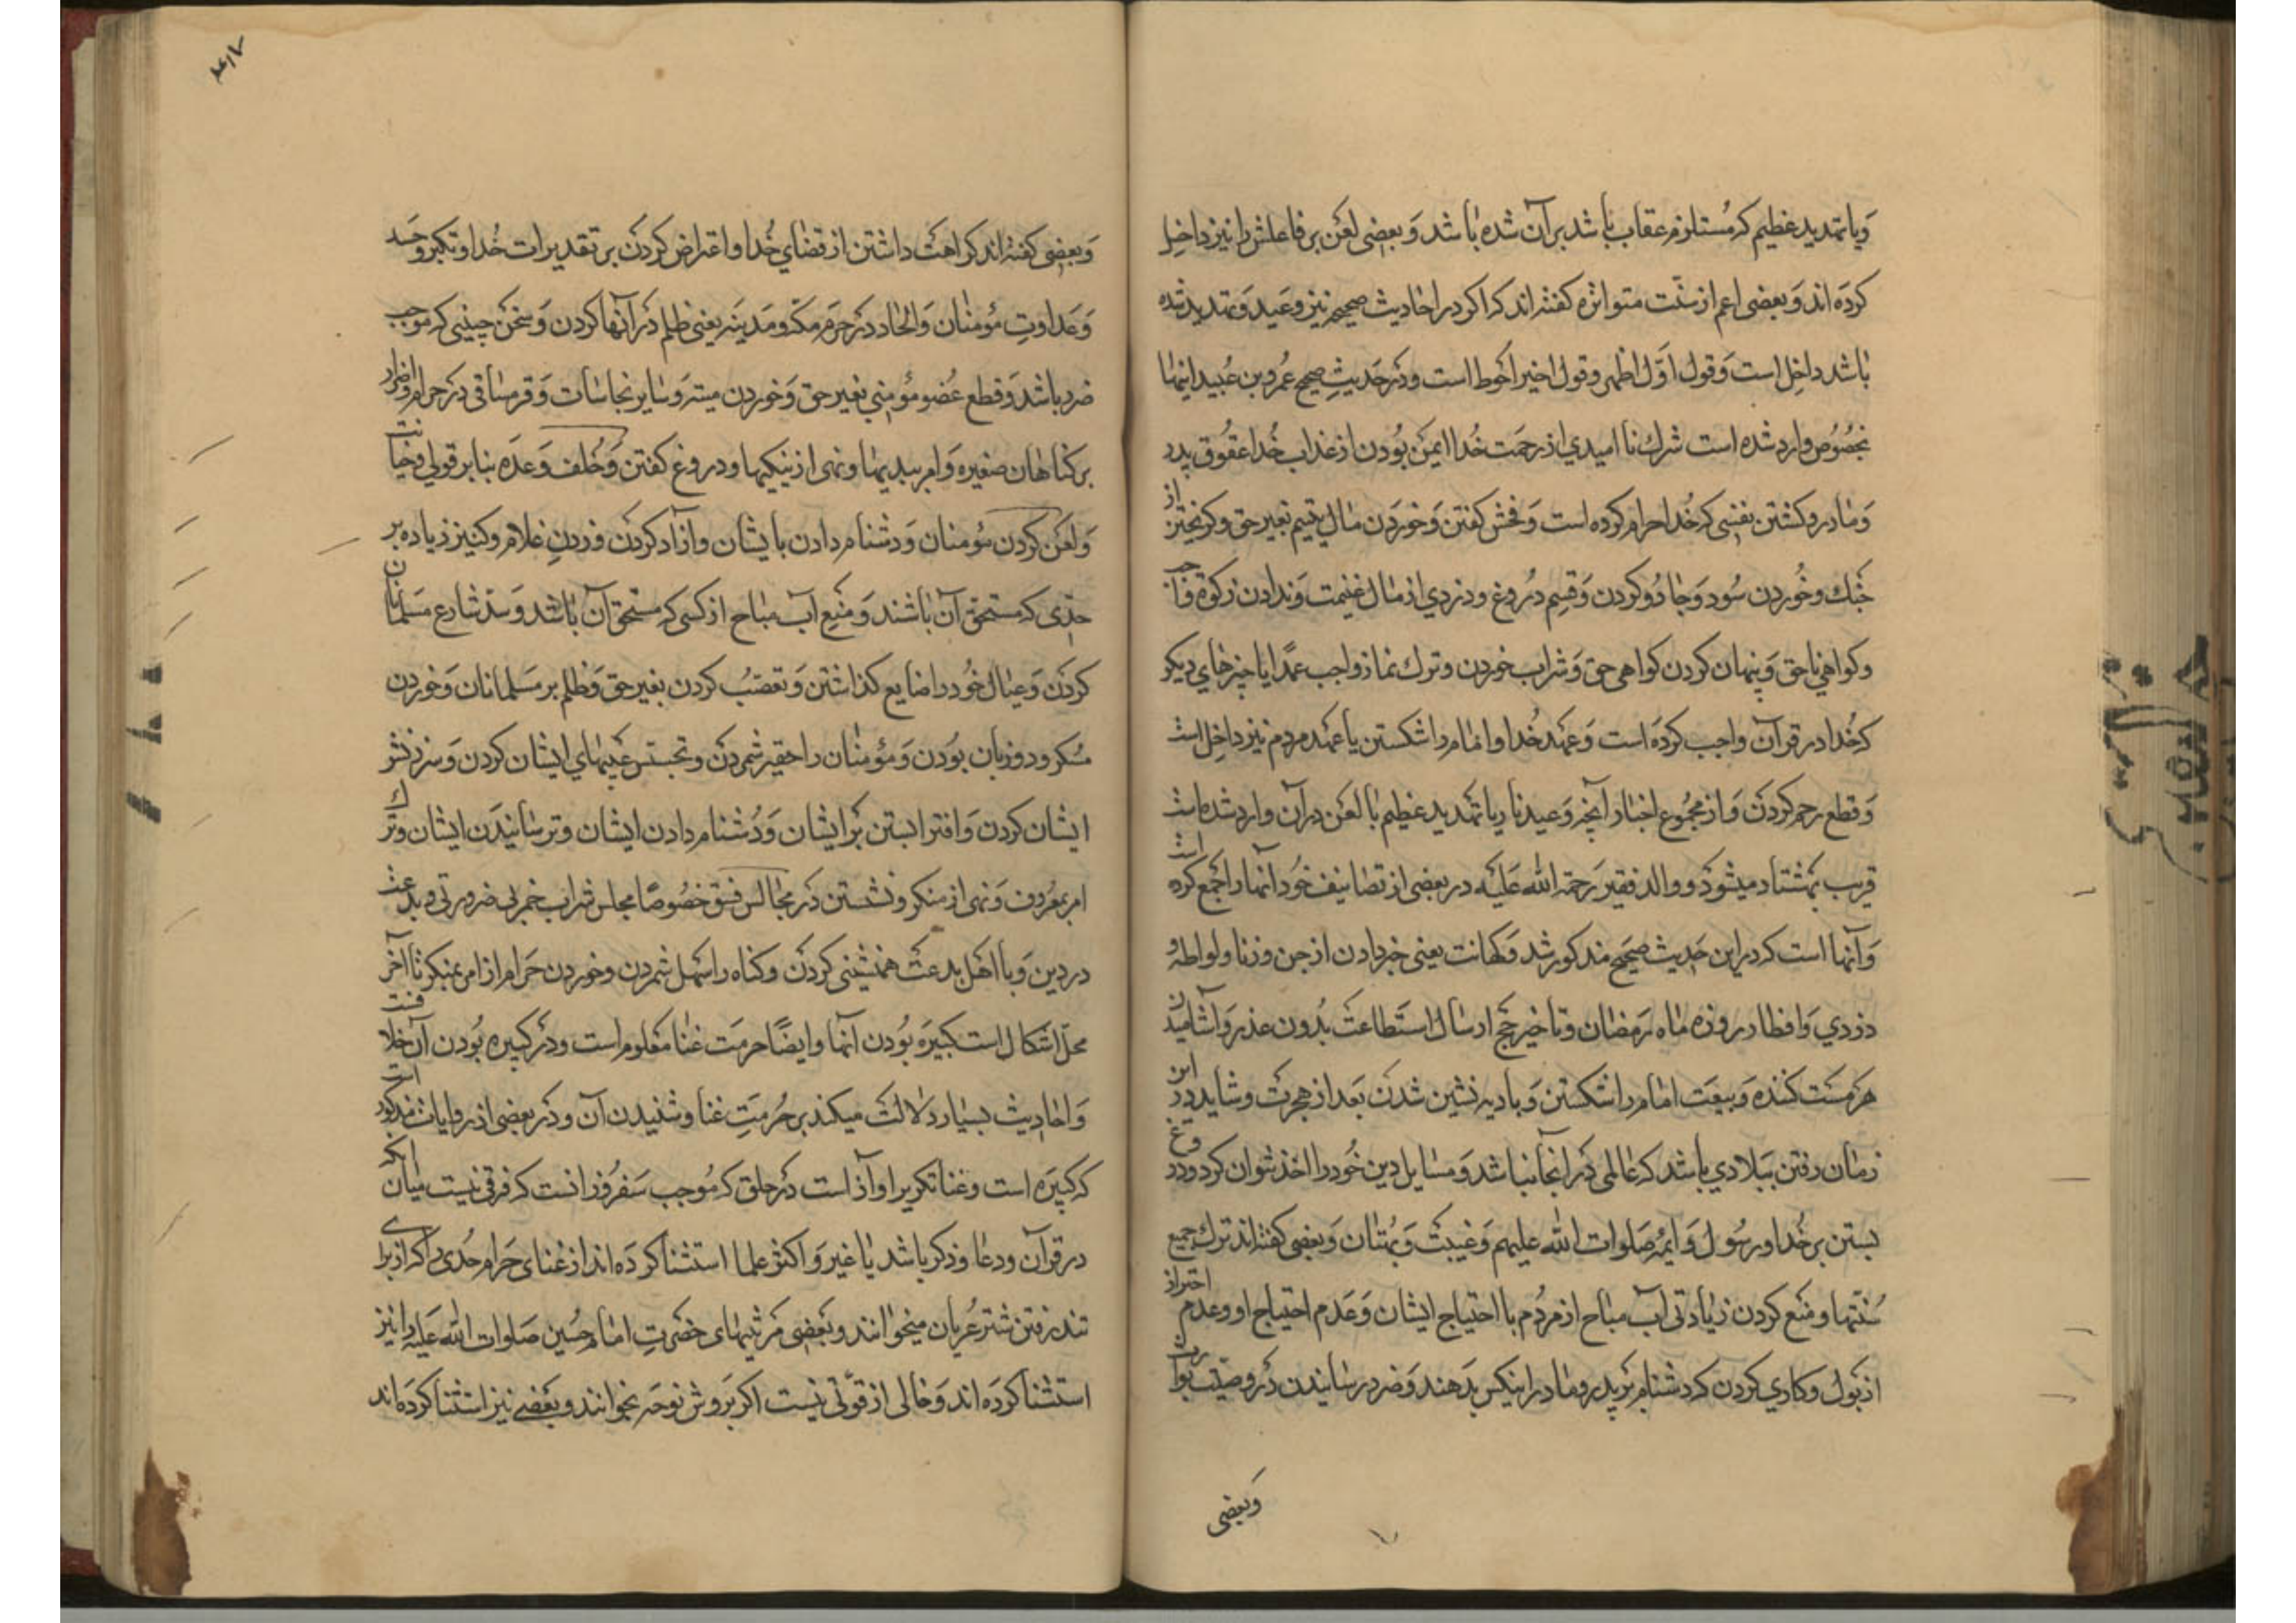 ویا تهدید عظیم که مستلزم عقاب باشد بر آن شده باشد و بعضی لعن بر فاعلش را نیز داخل
کرده اند و بعضی اعم از سنّت متواتره کفته اند که اکر در احادیث صحیحه نیز وعید و تهدید شده
باشد داخل است و قول اوّل اظهر و قول اخیر احوط است و در حدیث صحیح عمرو بن عبید اینها
بخصوص وارد شده است شرک نا امیدی از رحمت خدا ایمن بودن از عذاب خدا عقوق پدر
و مادر و کشتن نفسی که خدا حرام کرده است و فحش کفتن و خوردن مال یتیم بغیر حق و کریختن از
جنک و خوردن سود و جادو کردن و قسم دروغ و دزدی از مال غنیمت و ندادن زکوة واجب
و کواهی ناحق و پنهان کردن کواهی حق و شراب خوردن و ترک نماز واجب عمدًا یا چیزهای دیکر
که خدا در قرآن واجب کرده است و عهد خدا و امام را شکستن یا عهد مردم نیز داخل است
و قطع رحم کردن و از مجموع اخبار آنچه وعید نار یا تهدید عظیم با لعن در آن وارد شده است
قریب بهشتاد میشود و والد فقیر رحمة الله علیه در بعضی از تصانیف خود آنها را جمع کرده است
و آنها است که در این حدیث صحیح مذکور شد و کهانت یعنی خبر دادن از جن و زنا و لواطه و
دزدی و افطار در روزه ماه رمضان و تاخیر حج از سال استطاعت بدون عذر و آشامیدن
هر مست کننده و بیعت امام را شکستن و بادیه نشین شدن بعد از هجرت و شاید در این
زمان رفتن ببلادی باشد که عالمی در آنجا نباشد و مسایل دین خود را اخذ نتوان کرد و دروغ
بستن بر خدا و رسول و ایمه صلوات الله علیهم و غیبت و بهتان و بعضی کفته اند ترک جمیع
سنّتها و منع کردن زیادتی آب مباح از مردم با احتیاج ایشان و عدم احتیاج او و عدم احتراز
از بول و کاری کردن که دشنام بر پدر و مادر اینکس بدهند و ضرر رسانیدن در وصیّت بوارث
وبعضی
۴۱۷
وبعضی کفته اند کراهت داشتن از قضای خدا و اعتراض کردن بر تقدیرات خدا و تکبر و حسد
و عداوت مؤمنان و الحاد در حرم مکه و مدینه یعنی ظلم در آنها کردن و سخن چینی که موجب
ضرر باشد و قطع عضو مؤمنی بغیر حق و خوردن میته و سایر نجاسات و قرمساقی در حرام و اصرار
بر کناهان صغیره و امر ببدیها و نهی از نیکیها و دروغ کفتن و خلف وعده بنابر قولی و خیانت
و لعن کردن مؤمنان و دشنام دادن بایشان و ازاد کردن و زدن غلام و کنیز زیاده بر
حدّی که مستحق آن باشند و منع آب مباح از کسی که مستحق آن باشد و سدّ شارع مسلمانان
کردن و عیال خود را ضایع کذاشتن و تعصّب کردن بغیر حق و ظلم بر مسلمانان و خوردن
مسکر و دو زبان بودن و مؤمنان را حقیر شمردن و تجسس عیبهای ایشان کردن و سرزنش
ایشان کردن و افترا بستن بر ایشان و دشنام دادن ایشان و ترسانیدن ایشان و ترک
امر بمعروف و نهی از منکر و نشستن در مجالس فسق خصوصًا مجلس شراب خمر بی ضرورتی و بدعت
در دین و با اهل بدعت همنشینی کردن و کناه را سهل شمردن و خوردن حرام از امر بمنکر تا آخر
محلّ اشکال است کبیره بودن آنها و ایضًا حرمت غنا معلوم است و در کبیره بودن آن خلافست
و احادیث بسیار دلالت میکند بر حرمت غنا و شنیدن آن و در بعضی از روایات مذکور است
که کبیره است و غنا تکریر اواز است در حلق که موجب سفر و زانست که فرقی نیست میان آنکه
در قرآن و دعا و ذکر باشد یا غیر و اکثر علما استثنا کرده اند از غنای حرام حدی را که از برای
تند رفتن شتر عربان میخوانند و بعضی مرثیهای حضرت امام حسین صلوات الله علیه را نیز
استثنا کرده اند و خالی از قوّتی نیست اکر بروش نوحه بخوانند و بعضی نیز استثنا کرده اند